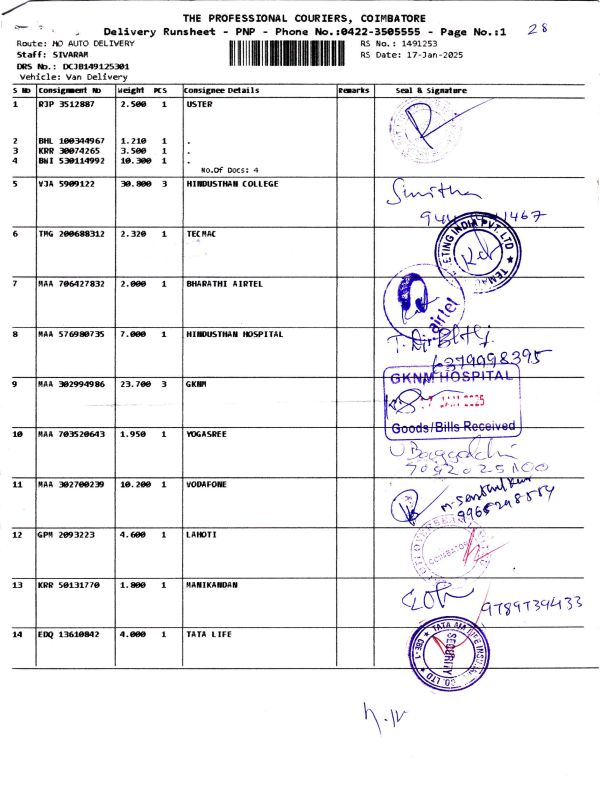 THE PROFESSIONAL COURIERS, COIMBATORE
Delivery Runsheet - PNP - Phone No.:0422-3505555 - Page No.:1 28
Route: MO AUTO DELIVERY RS No.: 1491253
Staff: SIVARAM RS Date: 17-Jan-2025
DRS No.: DCJB149125301
Vehicle: Van Delivery
S No Consignment No Weight PCS Consignee Details Remarks Seal & Signature
1 RJP 3512887 2.500 1 USTER
2 BHL 100344967 1.210 1 .
3 KRR 30074265 3.500 1 .
4 BWI 530114992 10.300 1 .
No.Of Docs: 4
5 VJA 5909122 30.800 3 HINDUSTHAN COLLEGE
6 TMG 200688312 2.320 1 TECMAC
7 MAA 706427832 2.000 1 BHARATHI AIRTEL
airtel
8 MAA 576980735 7.000 1 HINDUSTHAN HOSPITAL
6379998395
9 MAA 302994986 23.700 3 GKNM
GKNM HOSPITAL
JAN 2025
Goods/Bills Received
10 MAA 703520643 1.950 1 YOGASREE
11 MAA 302700239 10.200 1 VODAFONE
12 GPM 2093223 4.600 1 LAHOTI
COIMBATORE
13 KRR 50131770 1.800 1 MANIKANDAN
9789739433
14 EDQ 13610842 4.000 1 TATA LIFE
SECURITY